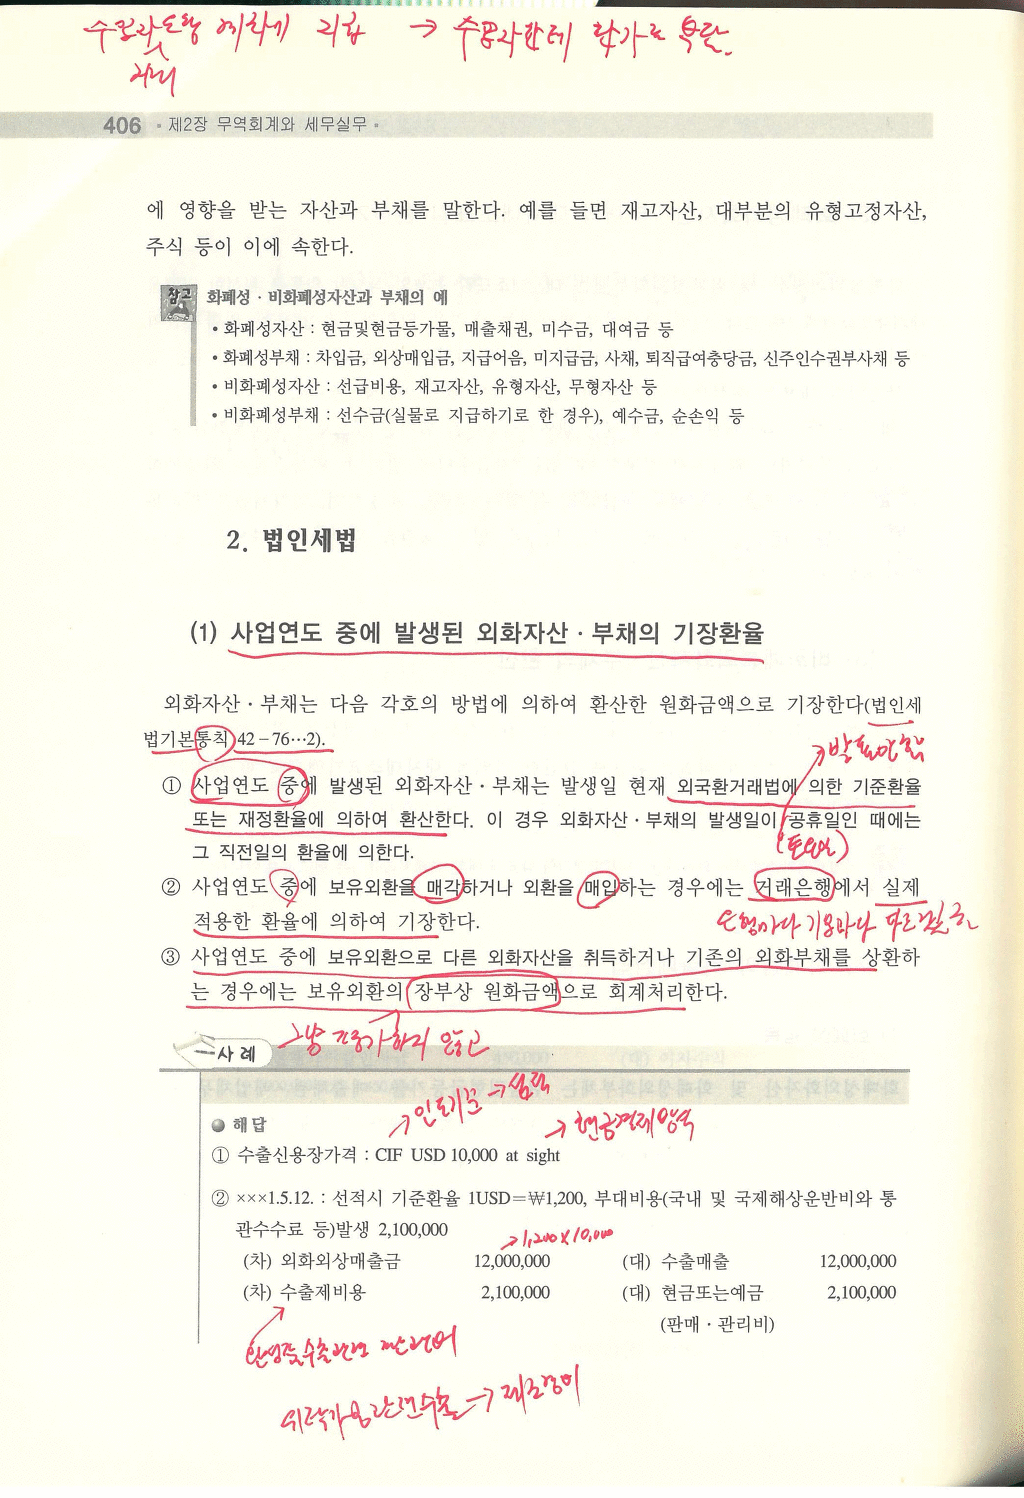 수출과 도랑
406 • 제2장 무역회계와 세무실무 •
에 영향을 받는 자산과 부채를 말한다. 예를 들면 재고자산, 대부분의 유형고정자산,
주식 등이 이에 속한다.
참고 화폐성·비화폐성자산과 부채의 예
• 화폐성자산 : 현금및현금등가물, 매출채권, 미수금, 대여금 등
• 화폐성부채 : 차입금, 외상매입금, 지급어음, 미지급금, 사채, 퇴직급여충당금, 신주인수권부사채 등
• 비화폐성자산 : 선급비용, 재고자산, 유형자산, 무형자산 등
• 비화폐성부채 : 선수금(실물로 지급하기로 한 경우), 예수금, 순손익 등
2. 법인세법
(1) 사업연도 중에 발생된 외화자산·부채의 기장환율
외화자산·부채는 다음 각호의 방법에 의하여 환산한 원화금액으로 기장한다(법인세
법기본통칙 42-76…2).
① 사업연도 중에 발생된 외화자산·부채는 발생일 현재 외국환거래법에 의한 기준환율
또는 재정환율에 의하여 환산한다. 이 경우 외화자산·부채의 발생일이 공휴일인 때에는
(토요일)
그 직전일의 환율에 의한다.
② 사업연도 중에 보유외환을 매각하거나 외환을 매입하는 경우에는 거래은행에서 실제
적용한 환율에 의하여 기장한다.
③ 사업연도 중에 보유외환으로 다른 외화자산을 취득하거나 기존의 외화부채를 상환하
는 경우에는 보유외환의 장부상 원화금액으로 회계처리한다.
사례
→ 현금결제방식
● 해답
① 수출신용장가격 : CIF USD 10,000 at sight
② ×××1.5.12. : 선적시 기준환율 1USD=₩1,200, 부대비용(국내 및 국제해상운반비와 통
관수수료 등)발생 2,100,000
→ 1,200 × 10,000
(차) 외화외상매출금 12,000,000 (대) 수출매출 12,000,000
(차) 수출제비용 2,100,000 (대) 현금또는예금 2,100,000
(판매·관리비)